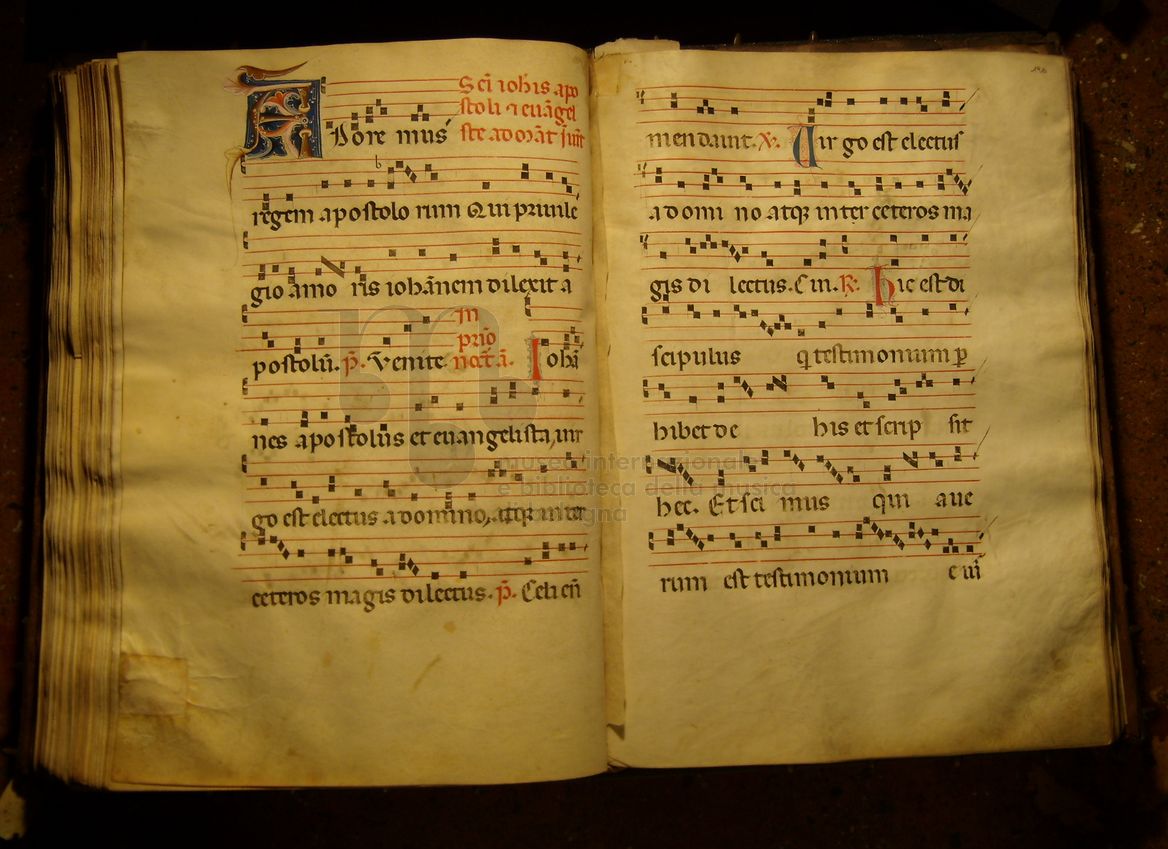 Sc̄i ioh̄is apo
stoli ⁊ euāgel
Adore mus
ste ad mat̄
regem apostolo rum Qui priuile
gio amo ris iohānem dilexit a
In
prīo
postolū. p̄. Venite. noct̄.ā. Iohā
nes apostolus et euangelista, uir
go est electus a domino, atqꝫ inter
ceteros magis dilectus. p̄. Celi en̄
mendauit. V. Uir go est electus
a domi no atqꝫ inter ceteros ma
gis di lectus. R. Hic est di
scipulus q testimonium p
hibet de his et scrip sit
hec. Et sci mus qui aue
rum est testimonium e ui
museo internazionale
e biblioteca della musica